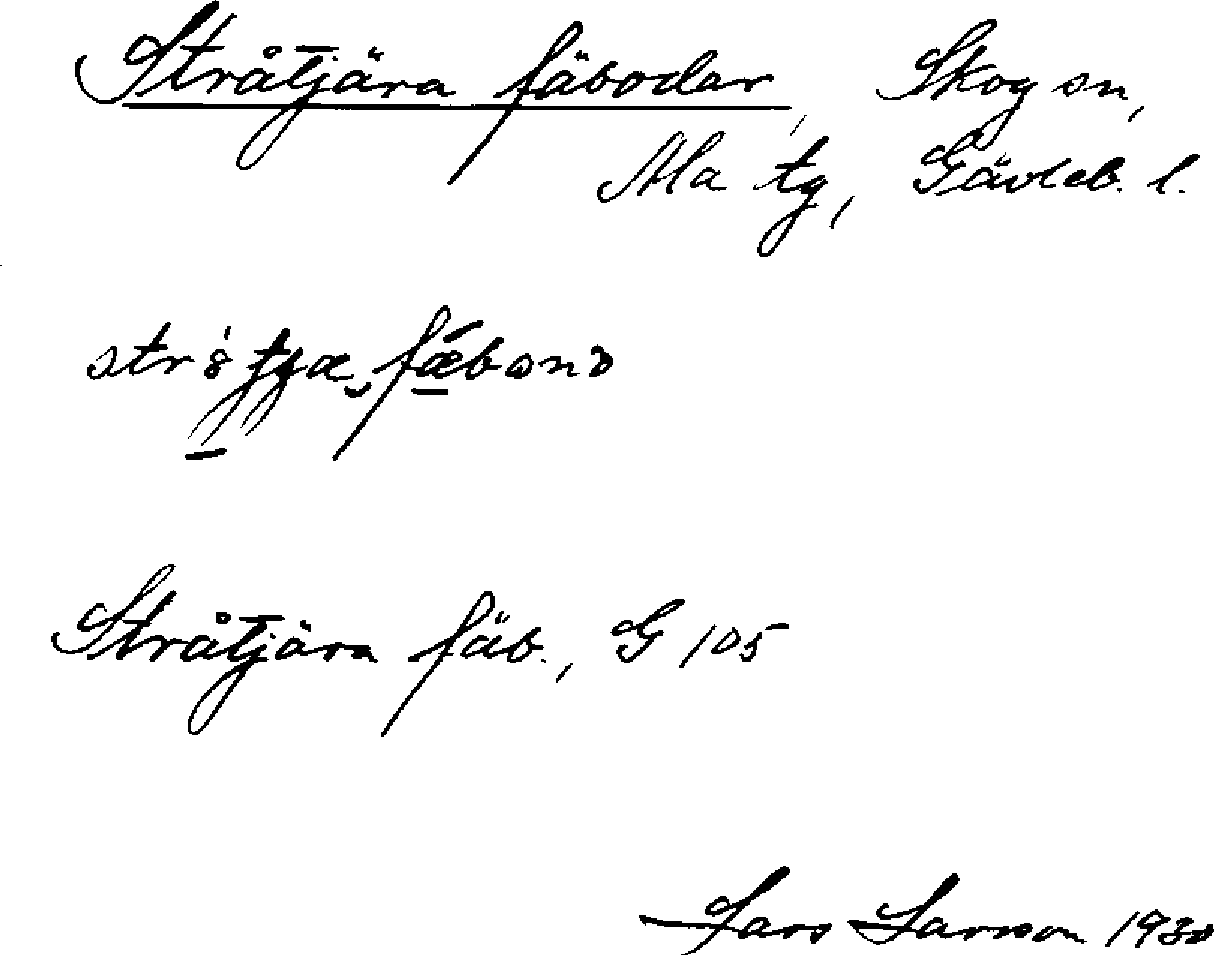 Stråtjära fäbodar, Skog sn,
Ala tg, Gävleb. l.
Stråtjära fäb., G 105
Lars Larsson 1930